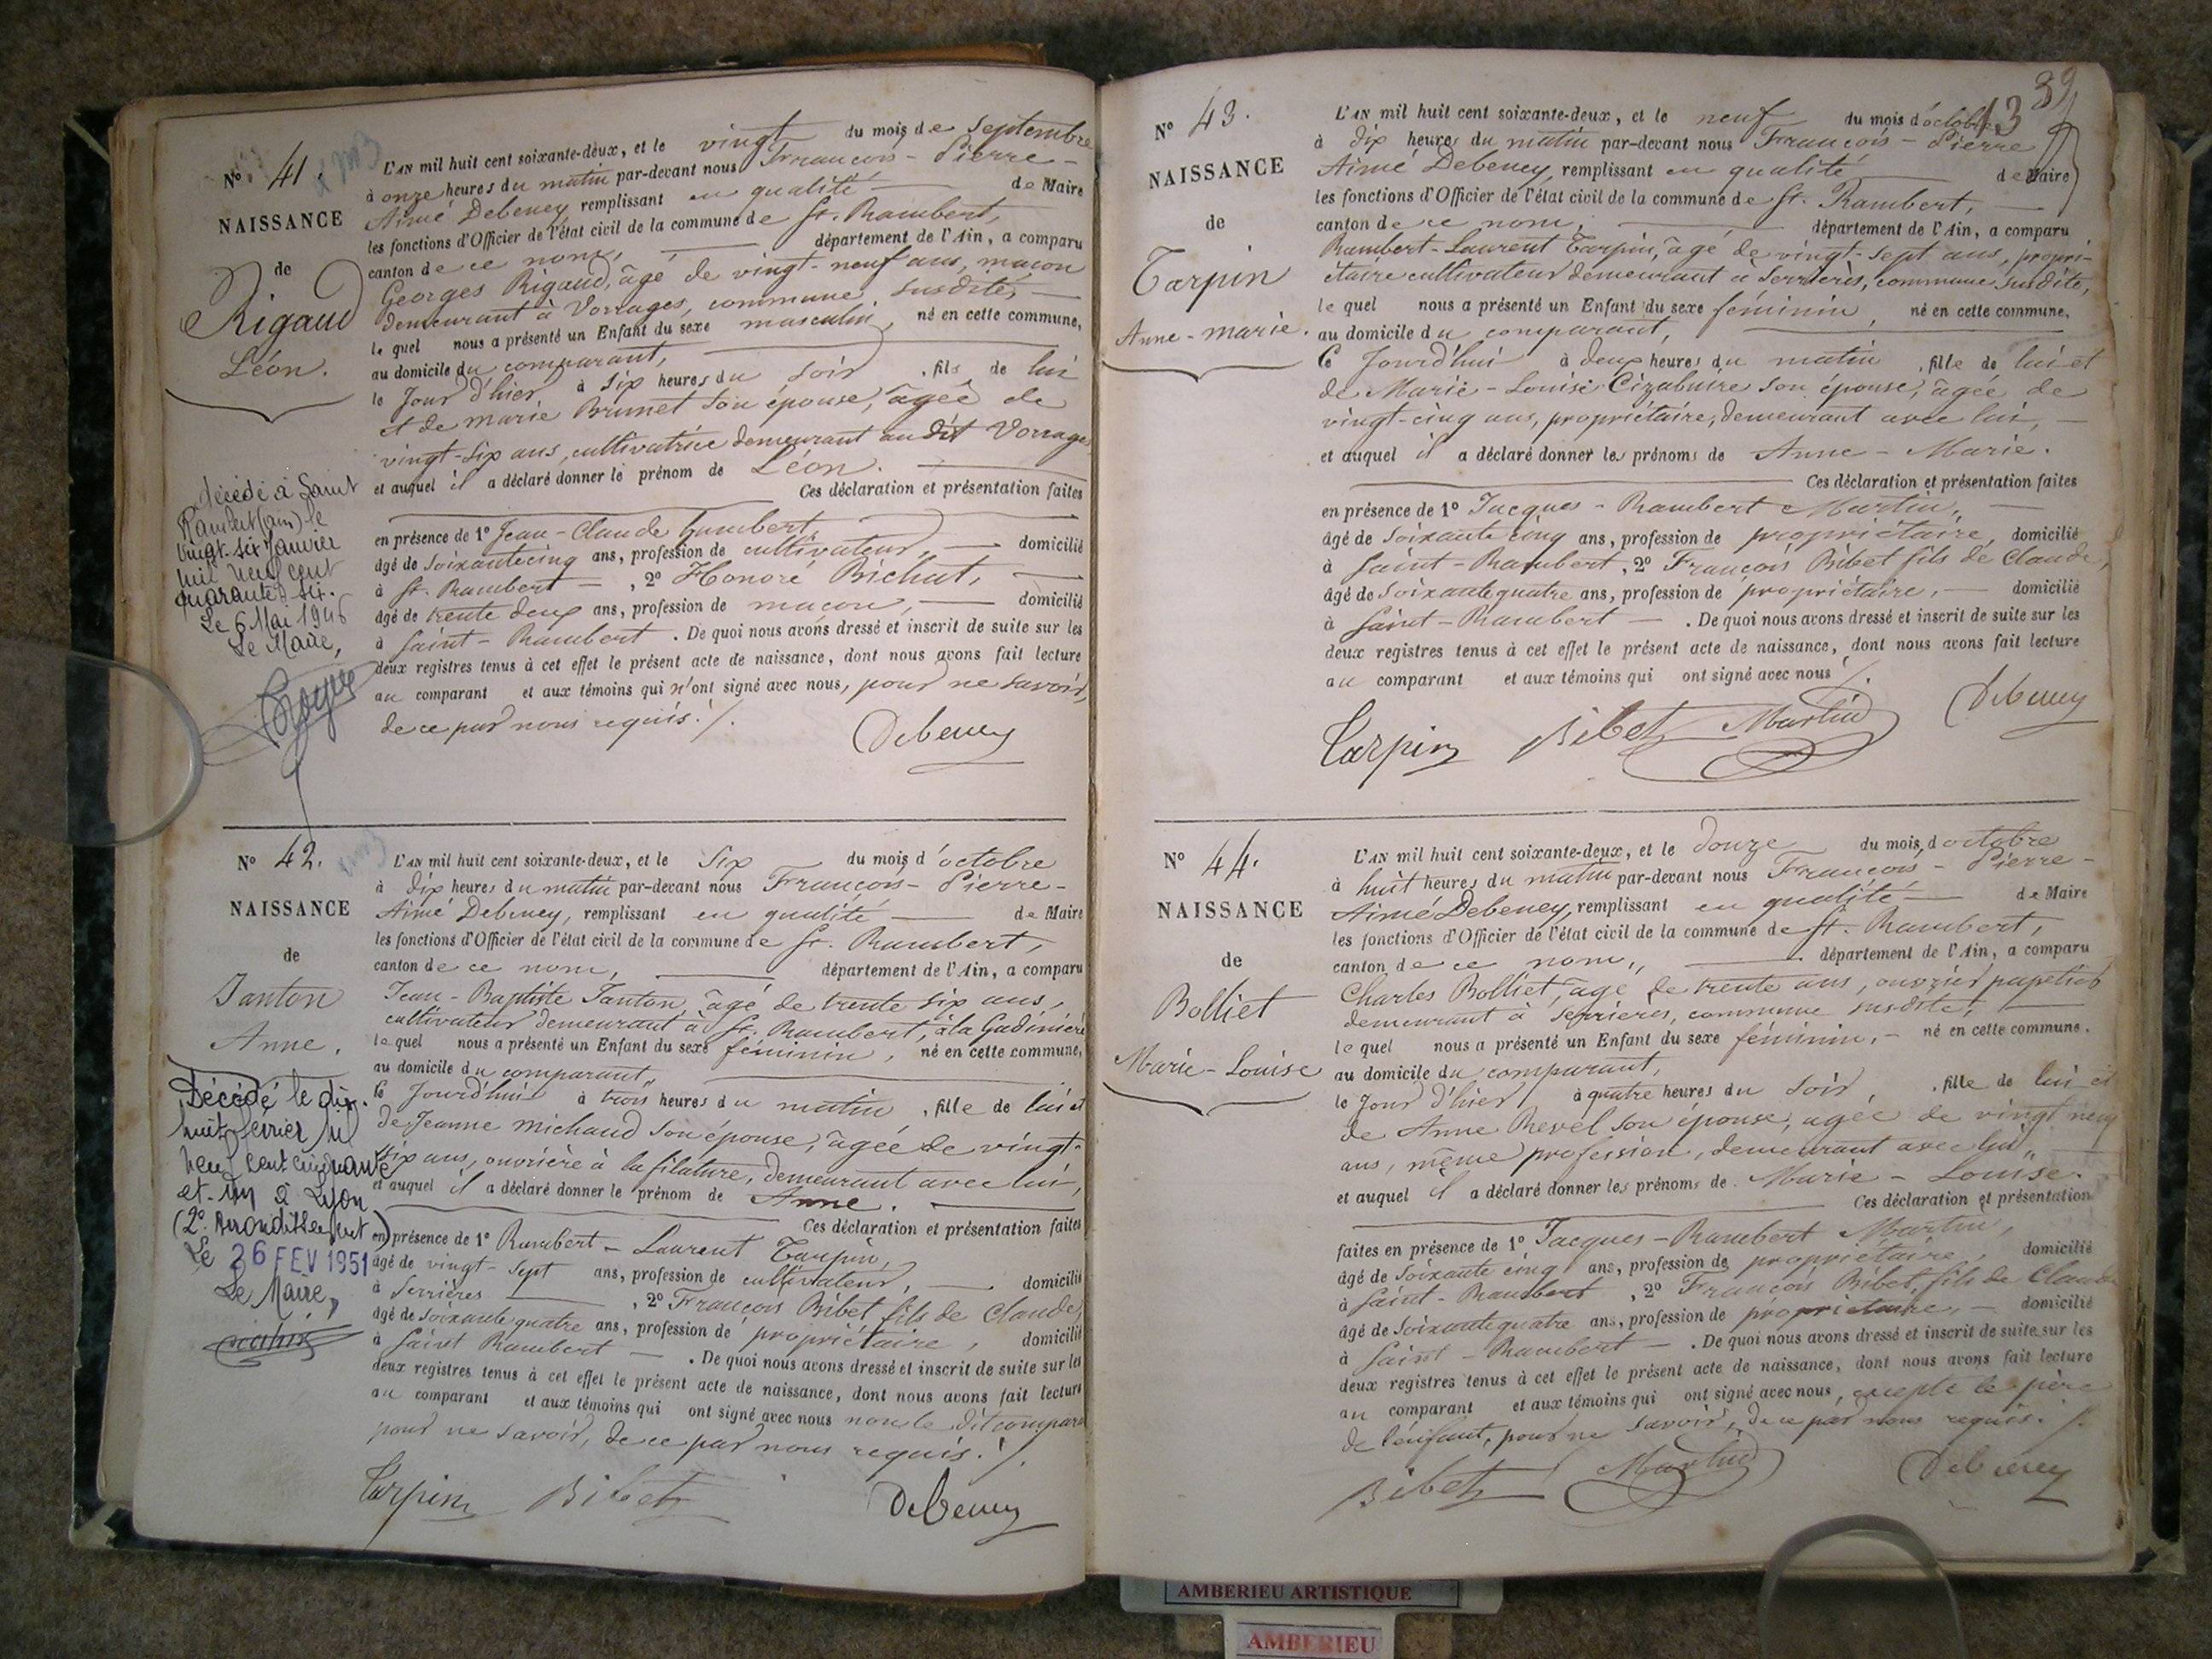 N° 41.
NAISSANCE
de
Rigaud
Léon.
L'AN mil huit cent soixante-deux, et le vingt du mois de Septembre
à onze heures du matin par-devant nous François - Pierre -
Aimé Debeney remplissant en qualité de Maire
les fonctions d'Officier de l'état civil de la commune de St. Rambert,
canton de ce nom, département de l'Ain, a comparu
Georges Rigaud, âgé de vingt-neuf ans, maçon
demeurant à Vorrages, commune susdite,
le quel nous a présenté un Enfant du sexe masculin, né en cette commune,
au domicile du comparant,
le Jour d'hier à Six heures du Soir, fils de lui
et de marie Brunet son épouse, âgée de
vingt-six ans, cultivatrice demeurant au dit Vorrages
et auquel il a déclaré donner le prénom de Léon.
Ces déclaration et présentation faites
en présence de 1° Jean-Claude Humbert,
âgé de Soixante cinq ans, profession de cultivateur, domicilié
à St. Rambert, 2° Honoré Bichat,
âgé de trente deux ans, profession de maçon, domicilié
à Saint-Rambert. De quoi nous avons dressé et inscrit de suite sur les
deux registres tenus à cet effet le présent acte de naissance, dont nous avons fait lecture
au comparant et aux témoins qui n'ont signé avec nous, pour ne savoir,
de ce par nous requis ./.
Debeney
décédé à Saint
Rambert (ain) le
vingt-six Janvier
mil neuf cent
quarante six.
Le 6 Mai 1946
Le Maire,
N° 42.
NAISSANCE
de
Tanton
Anne.
L'AN mil huit cent soixante-deux, et le Six du mois d'octobre
à dix heures du matin par-devant nous François - Pierre -
Aimé Debeney, remplissant en qualité de Maire
les fonctions d'Officier de l'état civil de la commune de St. Rambert,
canton de ce nom, département de l'Ain, a comparu
Jean-Baptiste Tanton, âgé de trente six ans,
cultivateur demeurant à St. Rambert, à la Gadinière
le quel nous a présenté un Enfant du sexe féminin, né en cette commune,
au domicile du comparant,
Ce Jourd'hui à trois heures du matin, fille de lui et
de Jeanne Michaud son épouse, âgée de vingt-
six ans, ouvrière à la filature, demeurant avec lui,
et auquel il a déclaré donner le prénom de Anne.
Ces déclaration et présentation faites
en présence de 1° Rambert - Laurent Tarpin,
âgé de vingt-sept ans, profession de cultivateur, domicilié
à Serrières, 2° François Bibet fils de Claude,
âgé de Soixante quatre ans, profession de propriétaire, domicilié
à Saint Rambert. De quoi nous avons dressé et inscrit de suite sur les
deux registres tenus à cet effet le présent acte de naissance, dont nous avons fait lecture
au comparant et aux témoins qui ont signé avec nous non le dit compara
pour ne savoir, de ce par nous requis ./.
Tarpin Bibet Debeney
Décédé le dix
huit février mil
neuf cent cinquante
et-un à Lyon
(2e Arrondissement)
Le 26 FEV 1951
Le Maire,
39
13
N° 43.
NAISSANCE
de
Tarpin
Anne-marie.
L'AN mil huit cent soixante-deux, et le neuf du mois d'octobre
à dix heures du matin par-devant nous François - Pierre
Aimé Debeney, remplissant en qualité de Maire
les fonctions d'Officier de l'état civil de la commune de St. Rambert,
canton de ce nom, département de l'Ain, a comparu
Rambert-Laurent Tarpin, âgé de vingt-sept ans, propri-
étaire cultivateur demeurant à Serrières, commune susdite,
le quel nous a présenté un Enfant du sexe féminin, né en cette commune,
au domicile du comparant,
Ce Jourd'hui à deux heures du matin, fille de lui et
de Marie-Louise Cizabuire son épouse, âgée de
vingt-cinq ans, propriétaire, demeurant avec lui,
et auquel il a déclaré donner les prénoms de Anne-Marie.
Ces déclaration et présentation faites
en présence de 1° Jacques-Rambert Martin,
âgé de Soixante cinq ans, profession de propriétaire, domicilié
à Saint-Rambert, 2° François Bibet fils de Claude,
âgé de Soixante quatre ans, profession de propriétaire, domicilié
à Saint-Rambert. De quoi nous avons dressé et inscrit de suite sur les
deux registres tenus à cet effet le présent acte de naissance, dont nous avons fait lecture
au comparant et aux témoins qui ont signé avec nous ./.
Tarpin Bibet Martin Debeney
N° 44.
NAISSANCE
de
Bolliet
Marie-Louise
L'AN mil huit cent soixante-deux, et le Douze du mois d'octobre
à huit heures du matin par-devant nous François - Pierre -
Aimé Debeney, remplissant en qualité de Maire
les fonctions d'Officier de l'état civil de la commune de St. Rambert,
canton de ce nom, département de l'Ain, a comparu
Charles Bolliet, âgé de trente ans, ouvrier papetier
demeurant à Serrières, commune susdite,
le quel nous a présenté un Enfant du sexe féminin, né en cette commune,
au domicile du comparant,
le Jour d'hier à quatre heures du Soir, fille de lui et
de Anne Revel son épouse, âgée de vingt neuf
ans, même profession, demeurant avec lui,
et auquel il a déclaré donner les prénoms de Marie-Louise.
Ces déclaration et présentation
faites en présence de 1° Jacques-Rambert Martin,
âgé de Soixante cinq ans, profession de propriétaire, domicilié
à Saint-Rambert, 2° François Bibet, fils de Claude
âgé de Soixante quatre ans, profession de propriétaire, domicilié
à Saint-Rambert. De quoi nous avons dressé et inscrit de suite sur les
deux registres tenus à cet effet le présent acte de naissance, dont nous avons fait lecture
au comparant et aux témoins qui ont signé avec nous, excepté le père
de l'enfant, pour ne savoir, de ce par nous requis ./.
Bibet Martin Debeney
AMBERIEU ARTISTIQUE
AMBERIEU